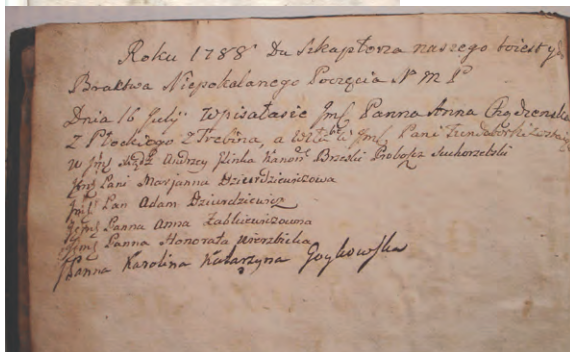 Roku 1788 Do Szkaplerza naszego
Bractwa Niepokalanego Poczęcia N M P
Dnia 16 Julij Wpisałasię Jmć Panna Anna
Z Płockiego z Trebina, a Jmć Pani
Jmć Xiądz Andrzey Slinka Kanon Brzeski Probosz Suchorzelski
Jmć Pani Marjanna Dzierdziewiczowa
Jmć Pan Adam Dzierdziewicz
Jmć Panna Anna Zabkiewiczowna
Jmć Panna Honorata Wierzbicka
Panna Karolina Katarzyna Goykowska